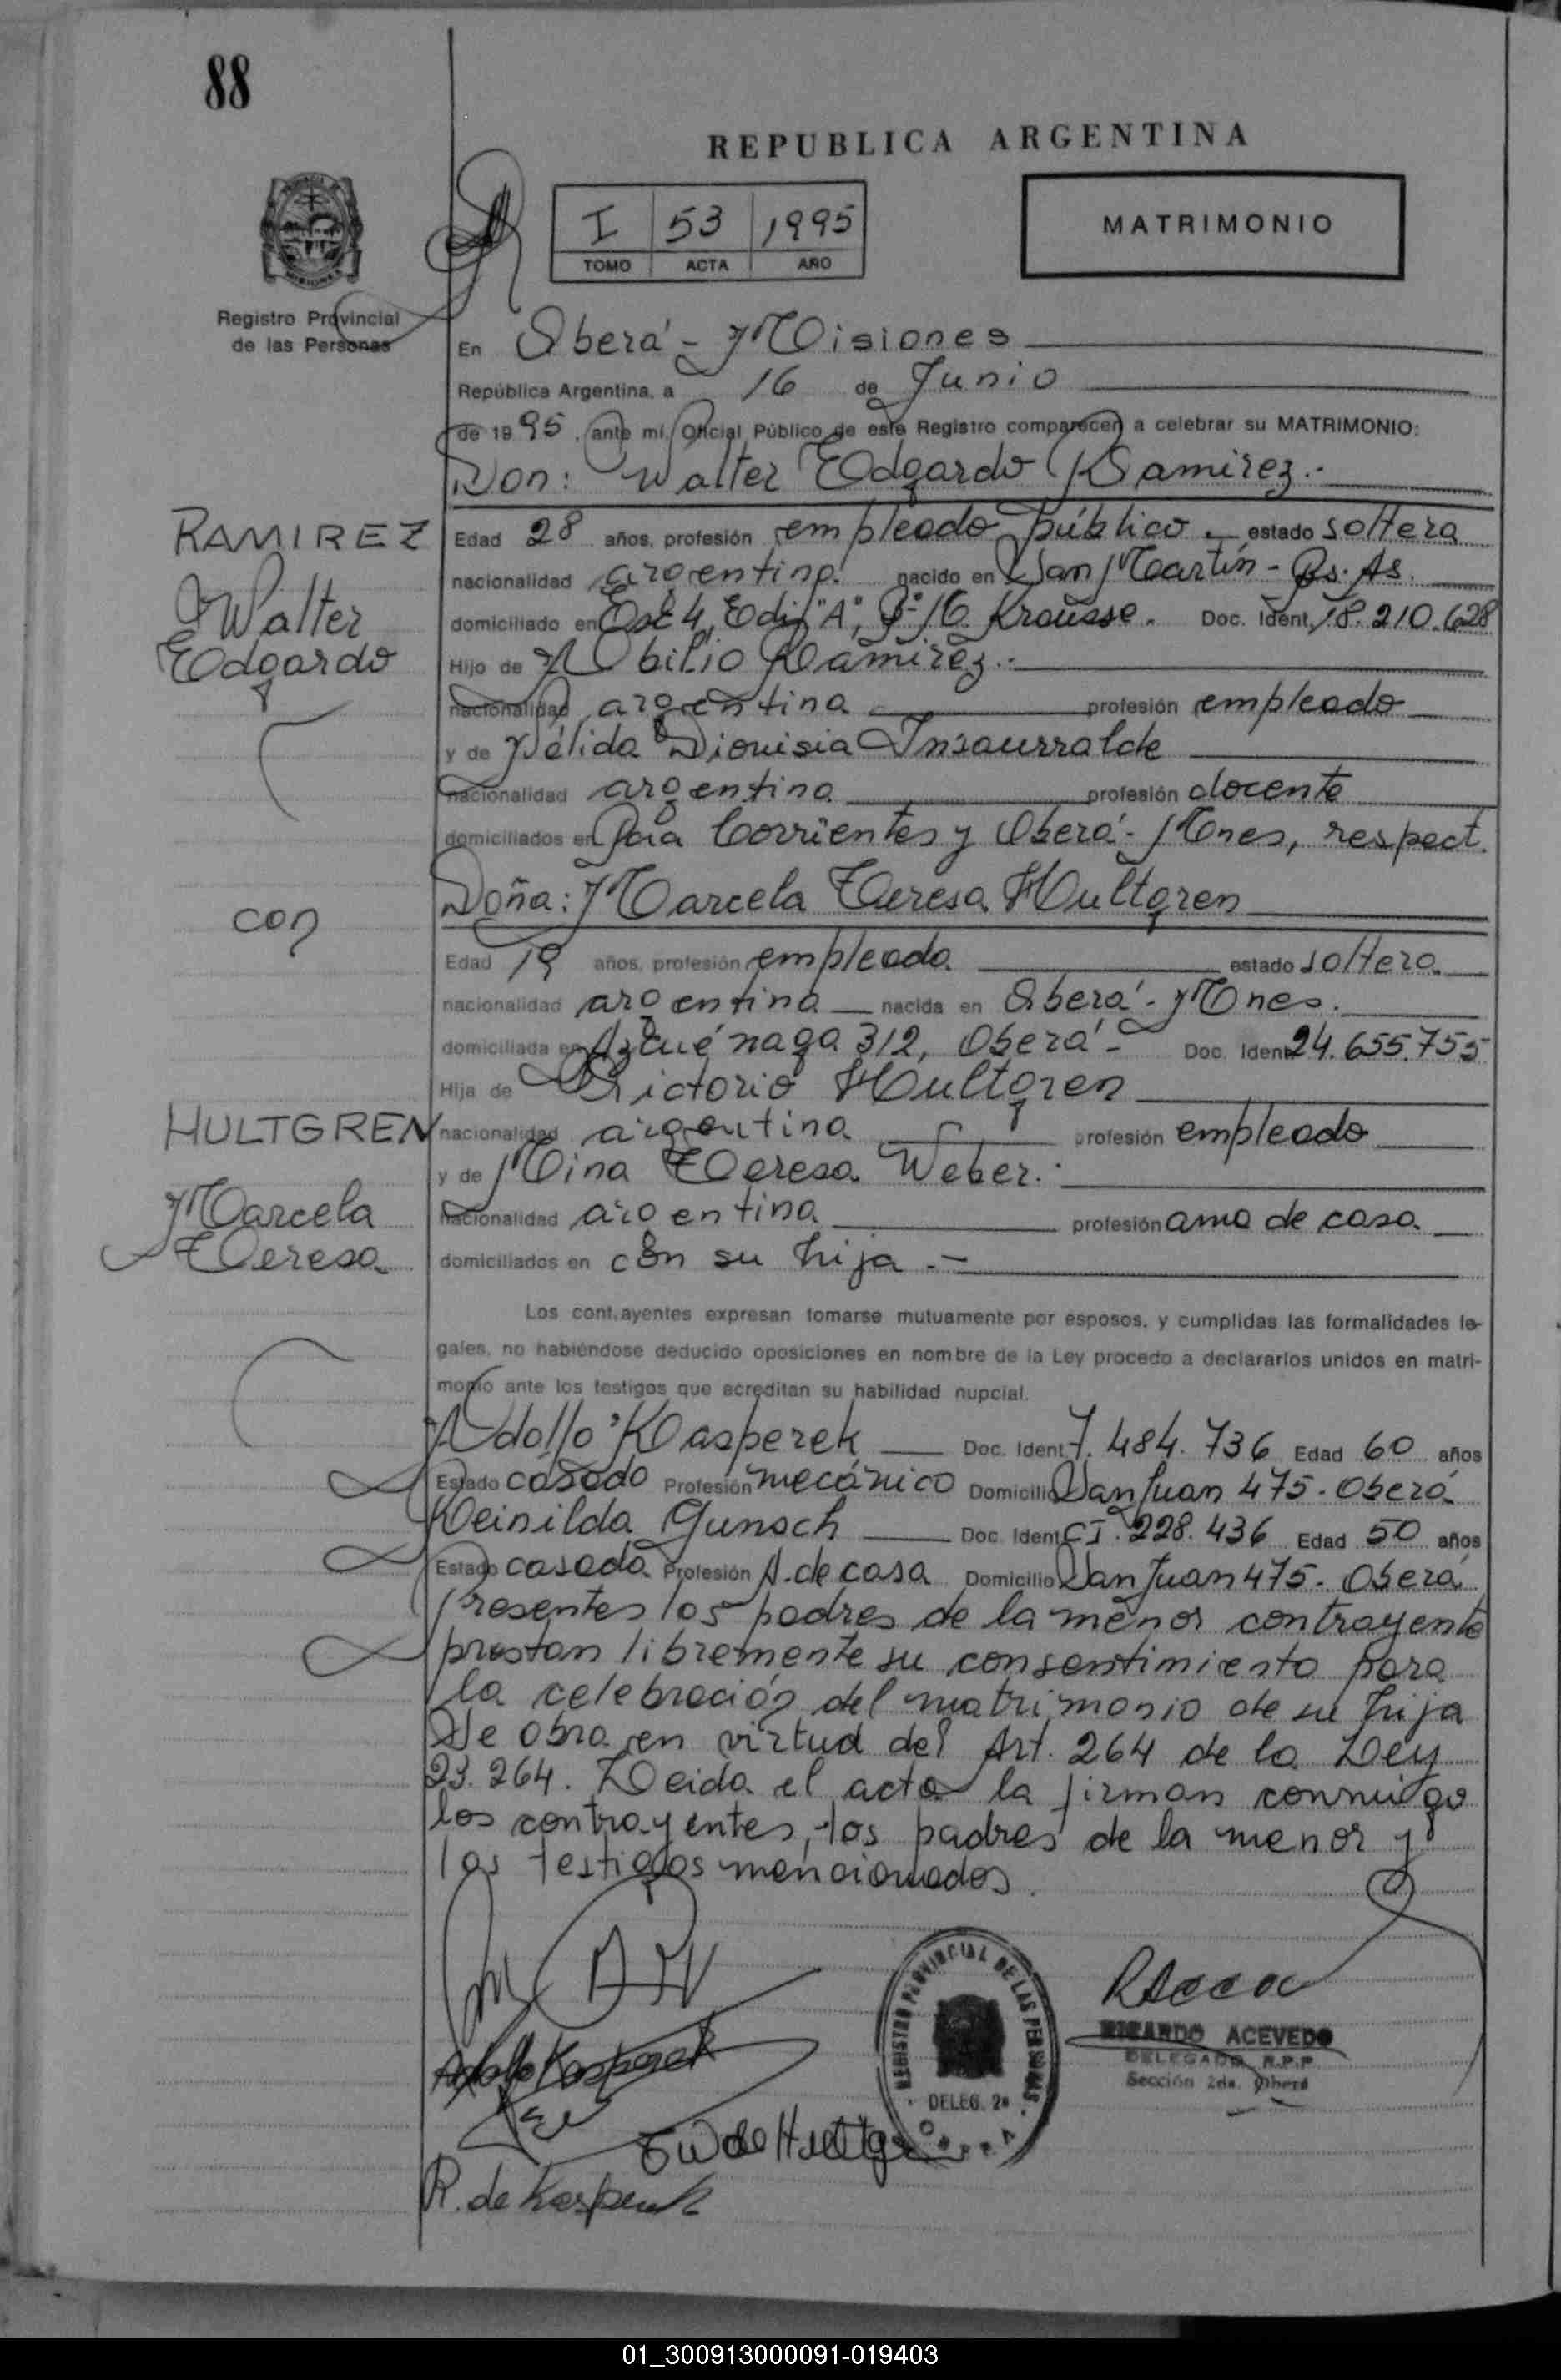 88
REPUBLICA ARGENTINA
I 53 1995
TOMO ACTA AÑO
MATRIMONIO
Registro Provincial
de las Personas
En Oberá - Misiones
República Argentina, a 16 de Junio
de 1995, ante mí, Oficial Público de este Registro comparecen a celebrar su MATRIMONIO:
Don: Walter Edgardo Ramirez.-
RAMIREZ
Walter
Edgardo
Edad 28 años, profesión empleado público. estado soltero
nacionalidad argentina nacido en San Martín - Bs. As.
domiciliado en Esc 4, Edif "A", Krausse. Doc. Ident. 18.210.628
Hijo de Abilio Ramirez.-
nacionalidad argentina profesión empleado
y de Nélida Dionisia Insaurralde
nacionalidad argentina profesión docente
domiciliados en Pcia Corrientes y Oberá - Mnes, respect.
Doña: Marcela Teresa Hultgren
con
Edad 19 años, profesión empleada estado soltera
nacionalidad argentina nacida en Oberá - Mnes.
domiciliada en Azcuénaga 312, Oberá - Doc. Ident. 24.655.755
Hija de Victorio Hultgren
HULTGREN
Marcela
Teresa
nacionalidad argentina profesión empleado
y de Mina Teresa Weber.-
nacionalidad argentina profesión ama de casa
domiciliados en con su hija.-
Los contrayentes expresan tomarse mutuamente por esposos, y cumplidas las formalidades le-
gales, no habiéndose deducido oposiciones en nombre de la Ley procedo a declararlos unidos en matri-
monio ante los testigos que acreditan su habilidad nupcial.
Adolfo Kasperek Doc. Ident. 7.484.736 Edad 60 años
Estado casado Profesión mecánico Domicilio San Juan 475 - Oberá
Reinilda Gunsch Doc. Ident. CI. 228.436 Edad 50 años
Estado casada Profesión A. de casa Domicilio San Juan 475 - Oberá
Presentes los padres de la menor contrayente
prestan libremente su consentimiento para
la celebración del matrimonio de su hija
Se obra en virtud del Art. 264 de la Ley
23.264. Leida el acta la firman conmigo
los contrayentes, los padres de la menor y
los testigos mencionados.
Adolfo Kasperek
T W de Hultgren
R. de Kasperek
REGISTRO PROVINCIAL DE LAS PERSONAS
DELEG. 2a
OBERA
RICARDO ACEVEDO
DELEGADO R.P.P
Sección 2da. Oberá
01_300913000091-019403